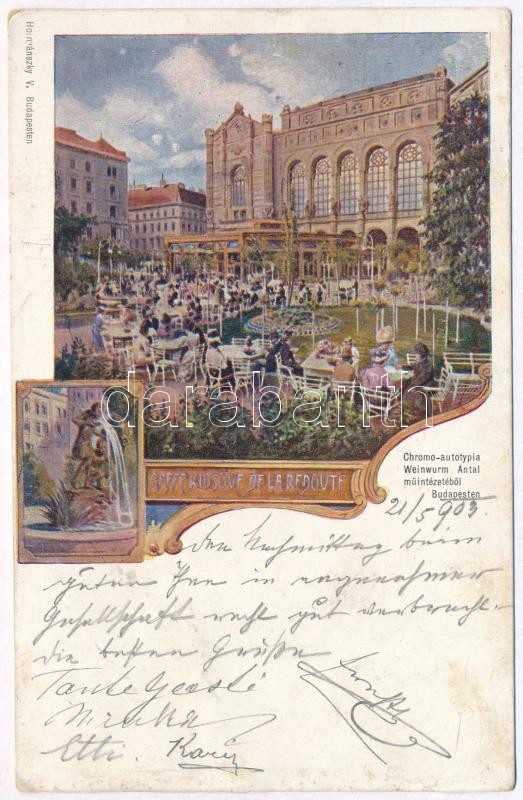 Hornvánszky V. Budapesten
darabanth
CAFÉ KIOSQUE DE LA REDOUTE
Chromo-autotypia
Weinwurm Antal
műintézetéből
Budapesten
21/5 903.
Den Nachmittag beim
guten Tee in angenehmer
Gesellschaft recht gut verbracht.
die besten Grüße
Tante
Etti.